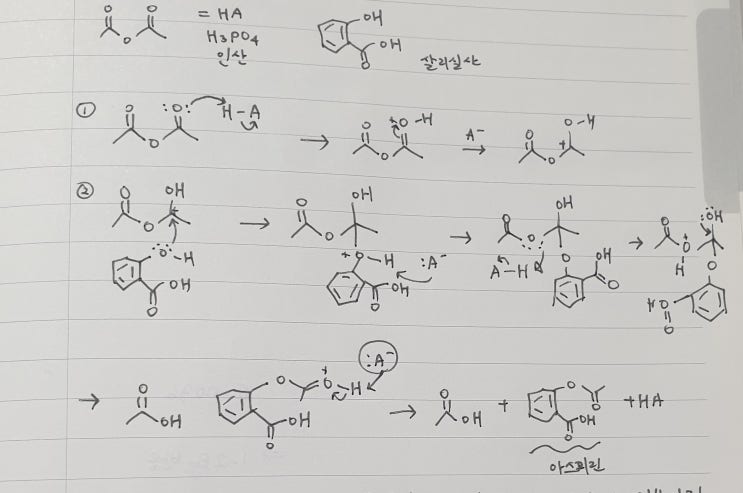 O O = HA OH
O H3PO4 OH
인산 O 살리실산
① O :O: H-A O +O-H A⁻ O O-H
O O O +
② O OH O OH O OH O + :OH
O + O O O
:O-H +O-H :A⁻ A-H O OH H O
OH OH O HO
O O O
→ O O + O-H :A⁻ → O + O O + HA
OH OH OH OH
O O
아스피린